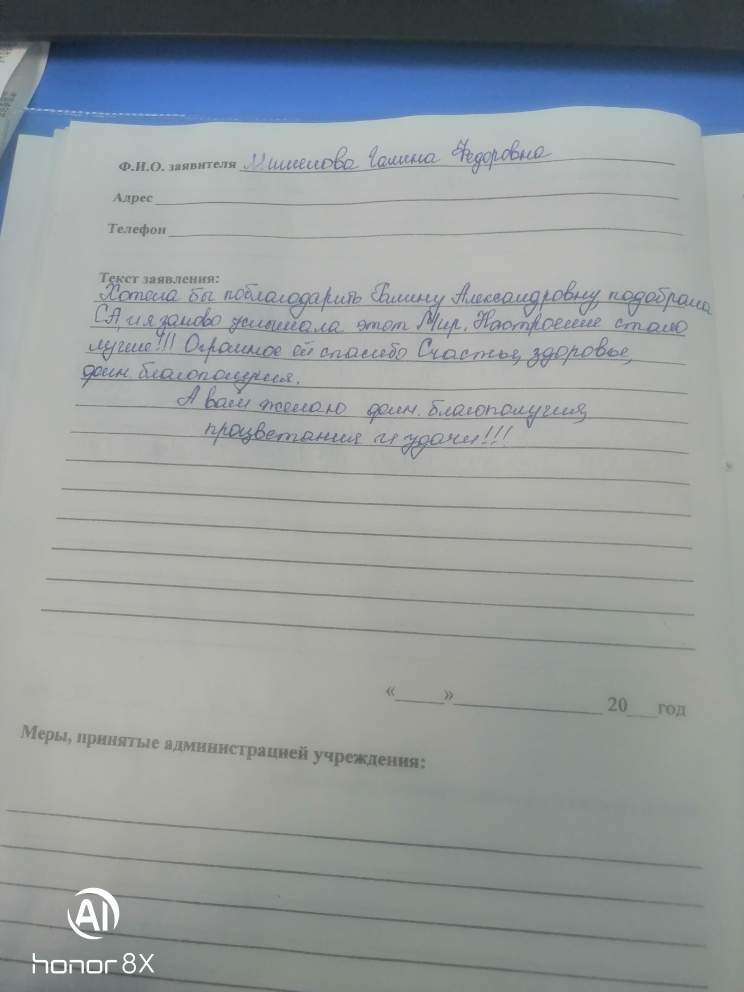 Ф.И.О. заявителя Галина Федоровна
Адрес
Телефон
Текст заявления:
Хотела бы поблагодарить Галину Александровну, подобрала
СА, и я заново услышала этот Мир. Настроение стало
лучше!!! Огромное ей спасибо Счастье, здоровье,
фин. благополучия.
А вам желаю фин. благополучия,
процветания и удачи!!!
« » 20 год
Меры, принятые администрацией учреждения:
AI
honor 8X